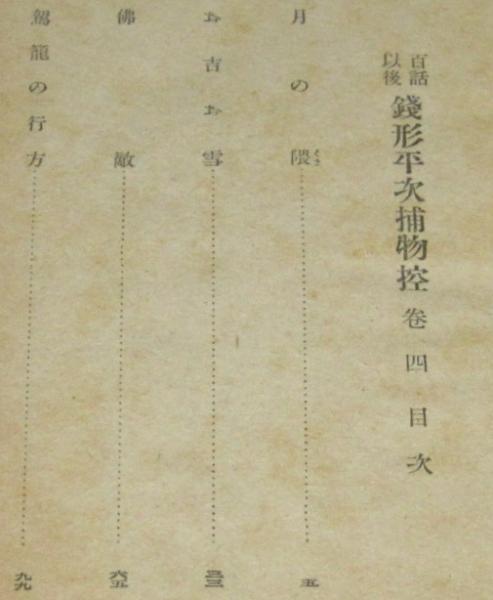 百話以後 錢形平次捕物控 卷四 目次
月の隈 くま 五
お吉お雪 三三
佛敵 六五
駕籠の行方 九九